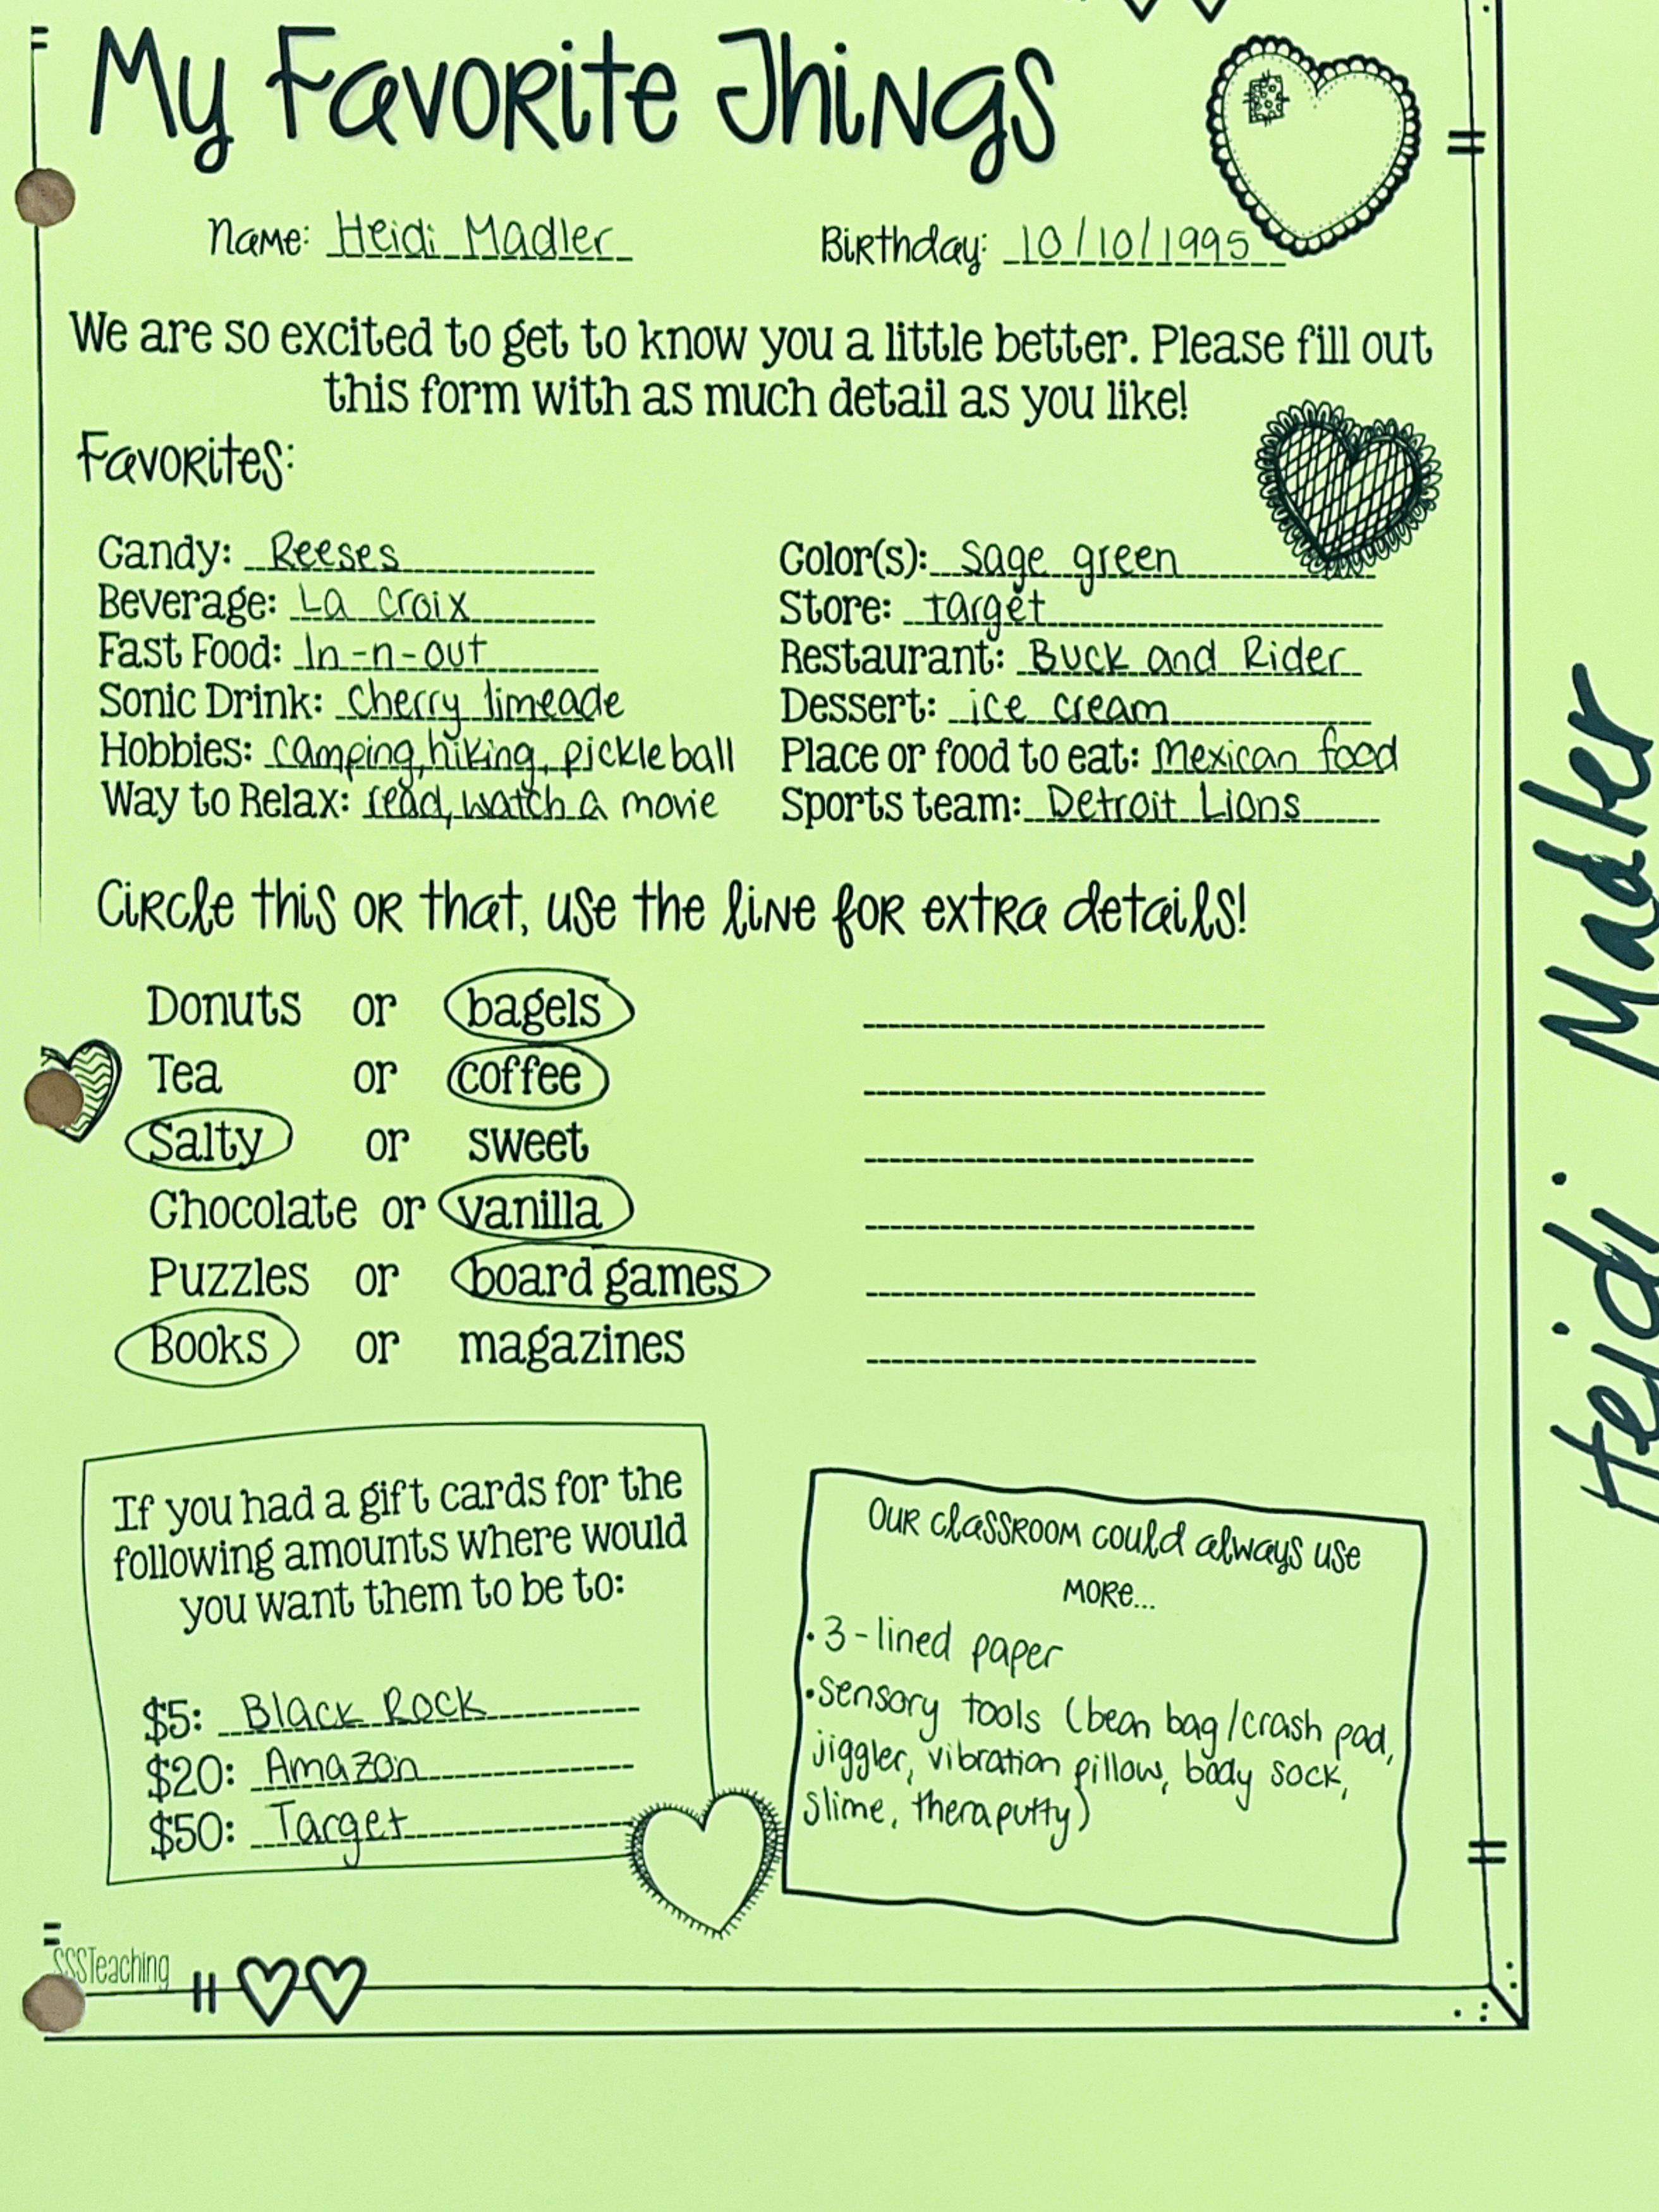 My Favorite Things
Name: Heidi Madler Birthday: 10/10/1995
We are so excited to get to know you a little better. Please fill out
this form with as much detail as you like!
Favorites:
Candy: Reeses Color(s): Sage green
Beverage: La Croix Store: Target
Fast Food: In-n-out Restaurant: Buck and Rider
Sonic Drink: Cherry limeade Dessert: ice cream
Hobbies: camping, hiking, pickleball Place or food to eat: Mexican food
Way to Relax: read, watch a movie Sports team: Detroit Lions
Circle this or that, use the line for extra details!
Donuts or bagels
Tea or coffee
Salty or sweet
Chocolate or vanilla
Puzzles or board games
Books or magazines
If you had a gift cards for the
following amounts where would
you want them to be to:
$5: Black Rock
$20: Amazon
$50: Target
Our classroom could always use
more...
• 3-lined paper
• Sensory tools (bean bag/crash pad,
jiggler, vibration pillow, body sock,
slime, theraputty)
SSSTeaching
Heidi Madler